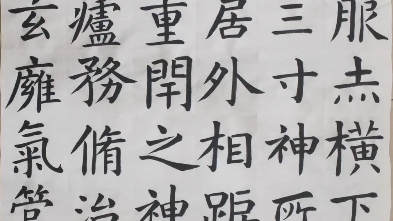 服赤横下
三寸神所
居外相距
重閇之神
廬務脩治
玄廱氣管